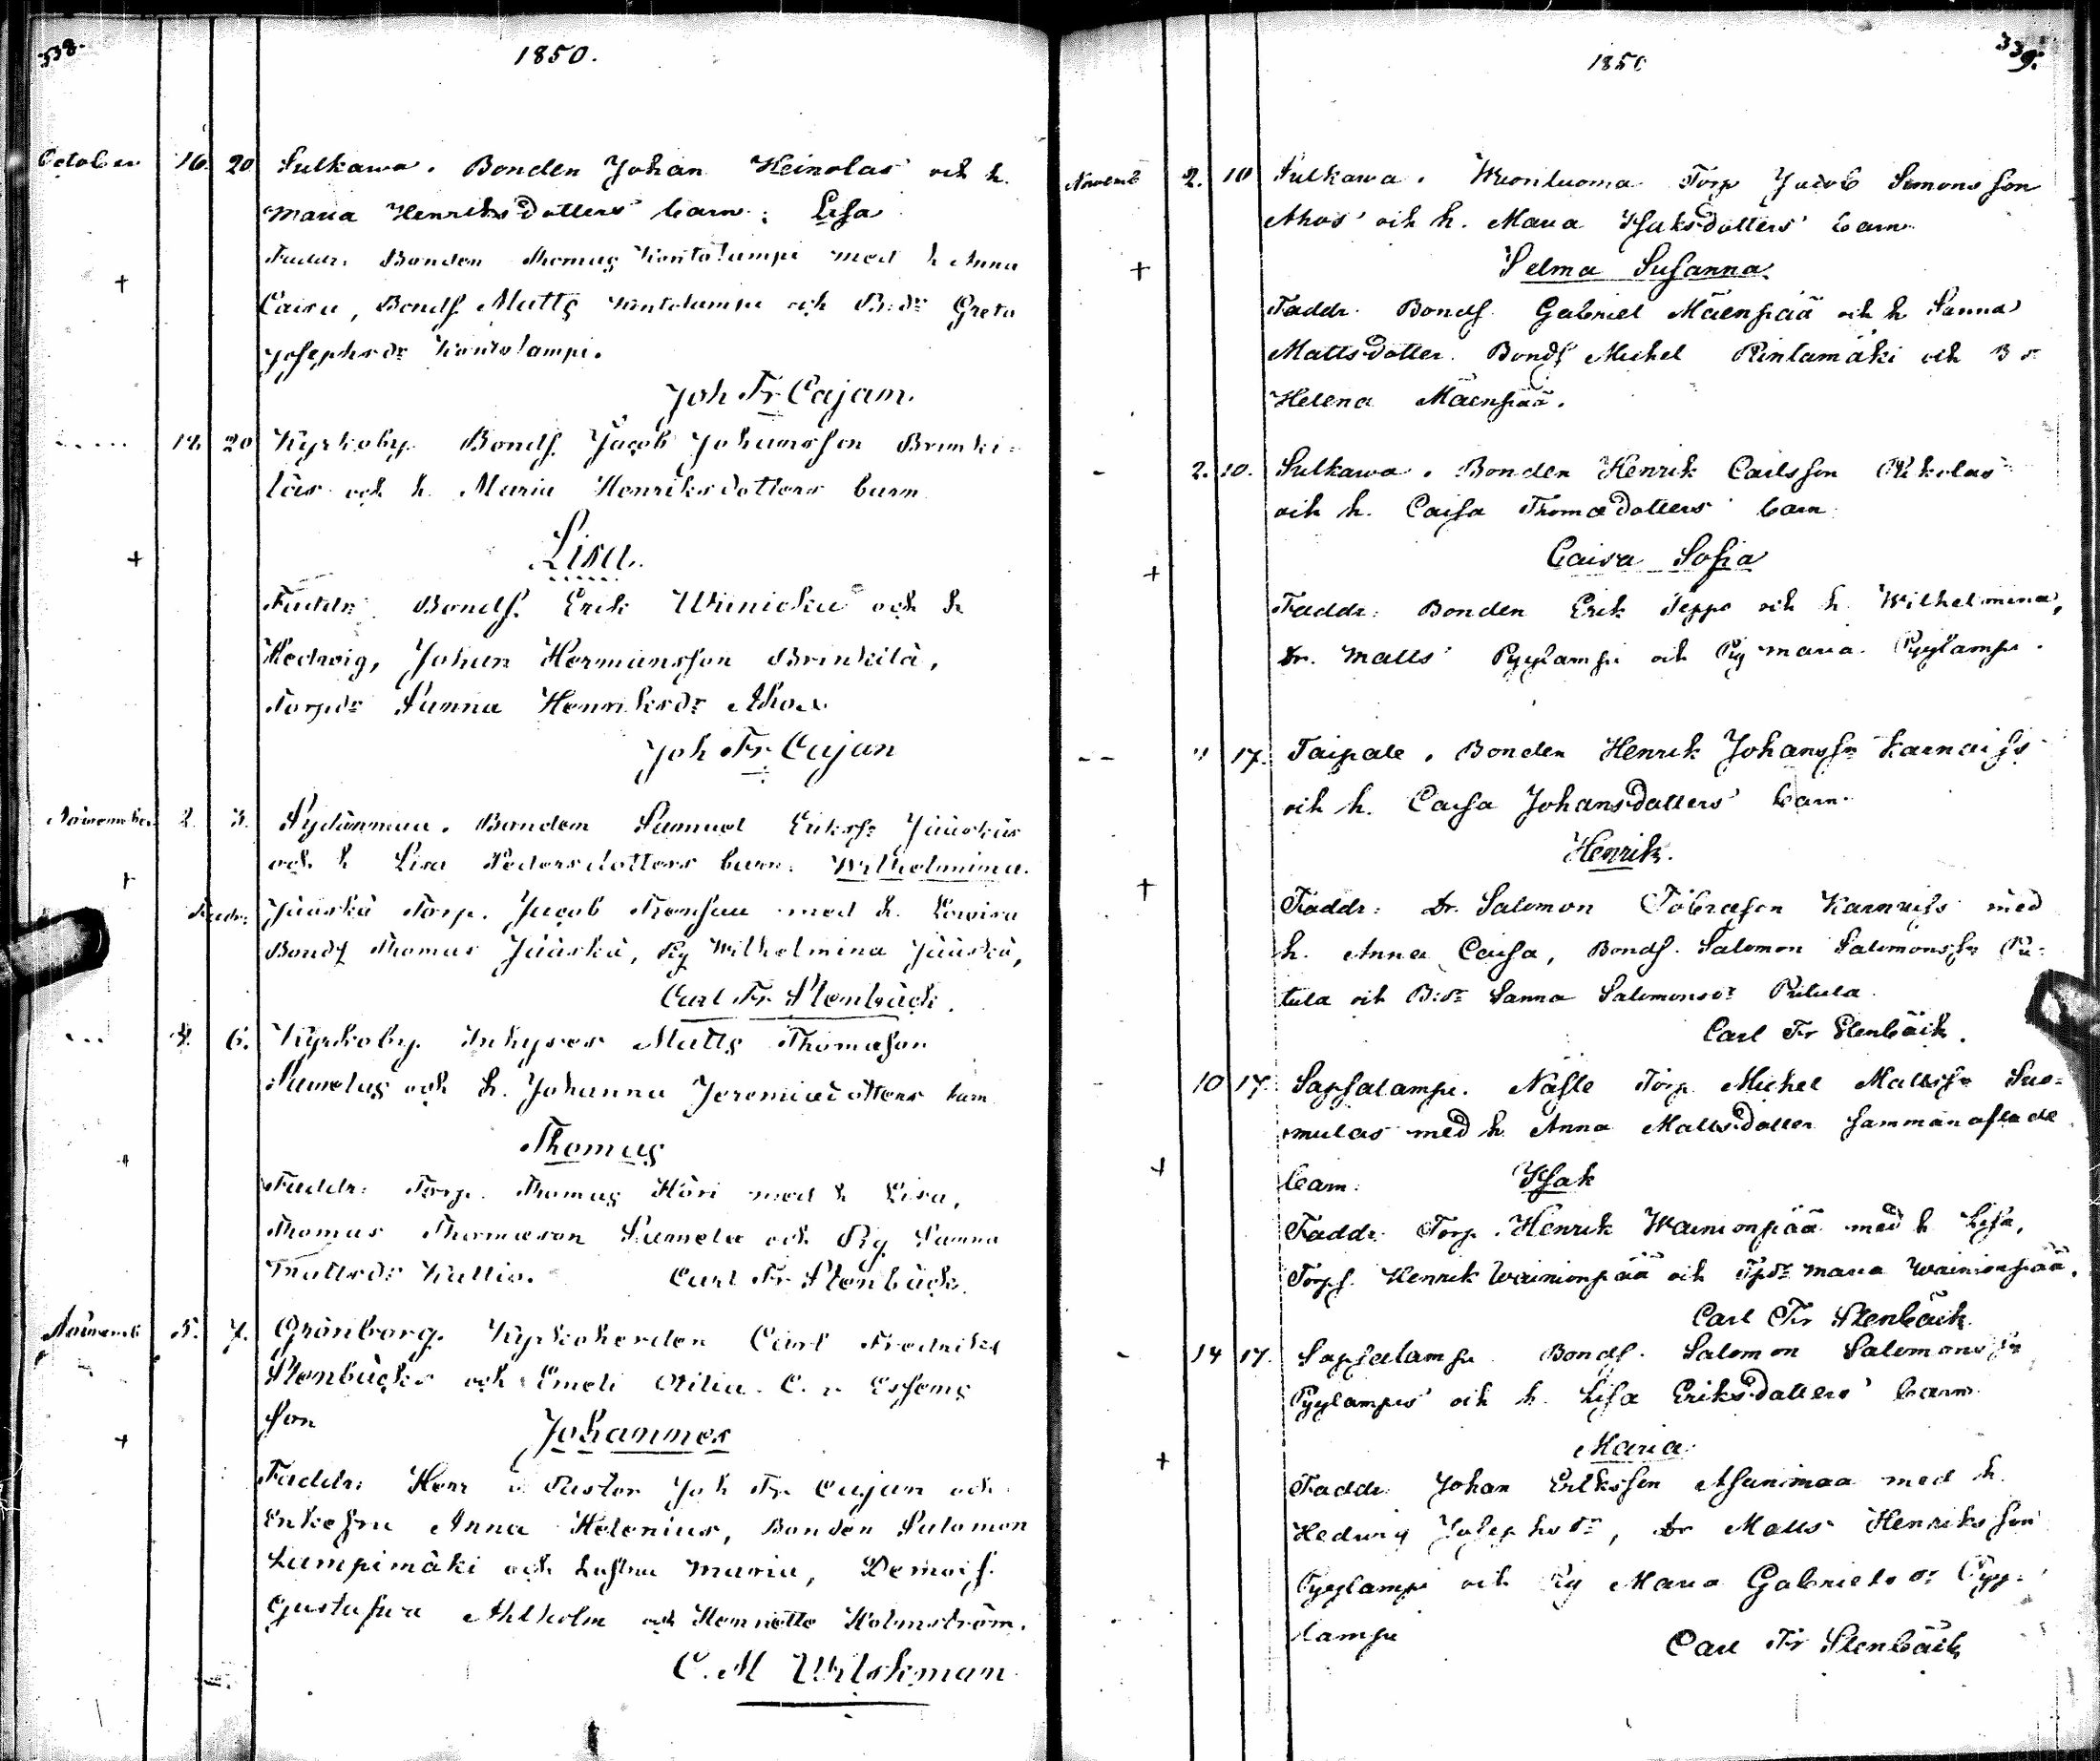 338.
1850.
October 16. 20 Sulkawa. Bonden Johan Heinolas och h.
Maria Henriksdotters barn: Lisa
Faddr: Bonden Thomas Kontolampi med h Anna
Caisa, Bonds. Matts Kontolampi och B:dr Greta
Josephsdr Kontolampi.
Joh Fr Cajan.
18. 20 Kyrkoby. Bonds. Jacob Johansson Brinki-
läs och h. Maria Henriksdotters barn
Lisa.
Faddr: Bonds. Erik och h
Hedwig, Johan Hermansson Brinkilä,
Torpdr Sanna Henriksdr Aho.
Joh Fr Cajan
November 2. 3. Sydänmaa. Bonden Samuel Erikss: Jääskäs
och h Lisa Pedersdotters barn: Wilhelmina.
Faddr: Jääskä Torp. Jacob med h. Lowisa
Bonds Thomas Jääskä, Pig Wilhelmina Jääskä,
Carl Fr Stenbäck.
4. 6. Kyrkoby. Inhyses Matts Thomasson
Sawelas och h. Johanna Jeremiædotters barn
Thomas
Faddr: Torp. Thomas Köri med h Lisa,
Thomas Thomæson Sawela och Pig Sanna
Mattsdr Kallio. Carl Fr Stenbäck.
Novemb 5. 7. Grönborg. Kyrkoherden Carl Fredriks
Stenbäcks och Emeli Otilia C. v. Essens
son Johannes
Faddr: Herr v Pastor Joh Fr Cajan och
Enkefru Anna Helenius, Bonden Salomon
Lampimäki och hustru Maria, Demois.
Gustafwa Ahlholm och Hennette Holmström.
C. M
1850
339.
Novemb 2. 10 Sulkawa. Wuonluoma Torp Jacob Simonsson
Ahos och h. Maria Isaksdotters barn
Selma Susanna.
Faddr. Bonds. Gabriel Mäenpää och h Sanna
Mattsdotter. Bonds Michel Rintamäki och B dr
Helena Mäenpää.
2. 10. Sulkawa. Bonden Henrik Carlsson Pikolas
och h. Caisa Thomædotters barn
Caisa Sofia
Faddr: Bonden Erik Seppä och h. Wilhelmina,
Dr. Matts Pyylampi och Pig Maria Pyylampi.
17. Taipale. Bonden Henrik Johanss: Karnaiss
och h. Caisa Johansdotters barn.
Henrik.
Faddr: Dr. Salomon Karnaiss med
h. Anna Caisa, Bonds. Salomon Salomonss: Pu-
tula och B:dr Sanna Salomonsdr Putula.
Carl Fr Stenbäck.
10 17. Sapsalampi. Näsle Torp Michel Mattss: Suo-
mulas med h Anna Mattsdotter sammanaflade
barn: Isak
Faddr. Torp. Henrik Wainionpää med h Lisa,
Torps. Henrik Wainionpää och Tpdr Maria Wainionpää.
Carl Fr Stenbäck
14 17. Sapsalampi Bonds. Salomon Salomonss:
Pyylampis och h. Lisa Eriksdotters barn
Maria
Faddr. Johan Eriksson Asunmaa med h.
Hedwig Josephsdr, Dr Matts Henriksson
Pyylampi och Pig Maria Gabrielsdr Pyy-
lampi Carl Fr Stenbäck